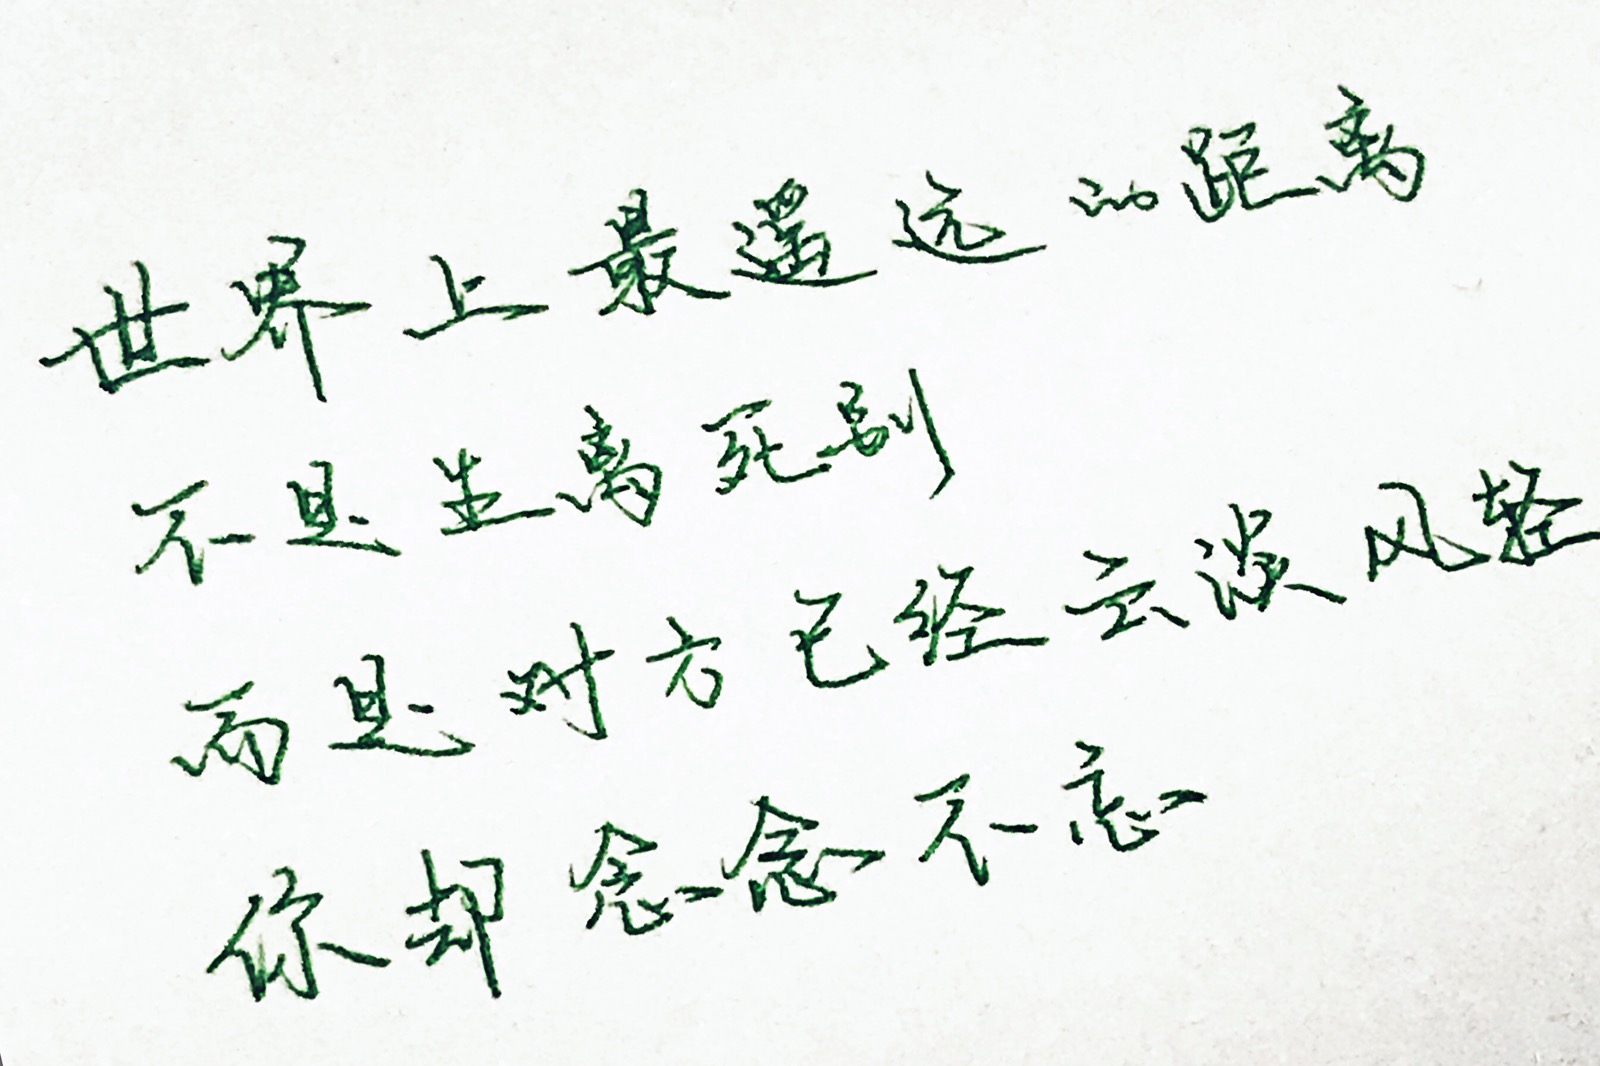 世界上最遥远的距离
不是生离死别
而是对方已经云淡风轻
你却念念不忘